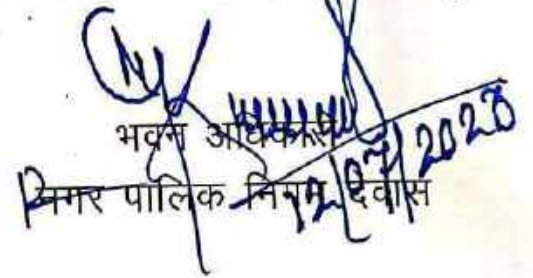 भवन अधिकारी
नगर पालिक निगम, देवास
12/07/2023